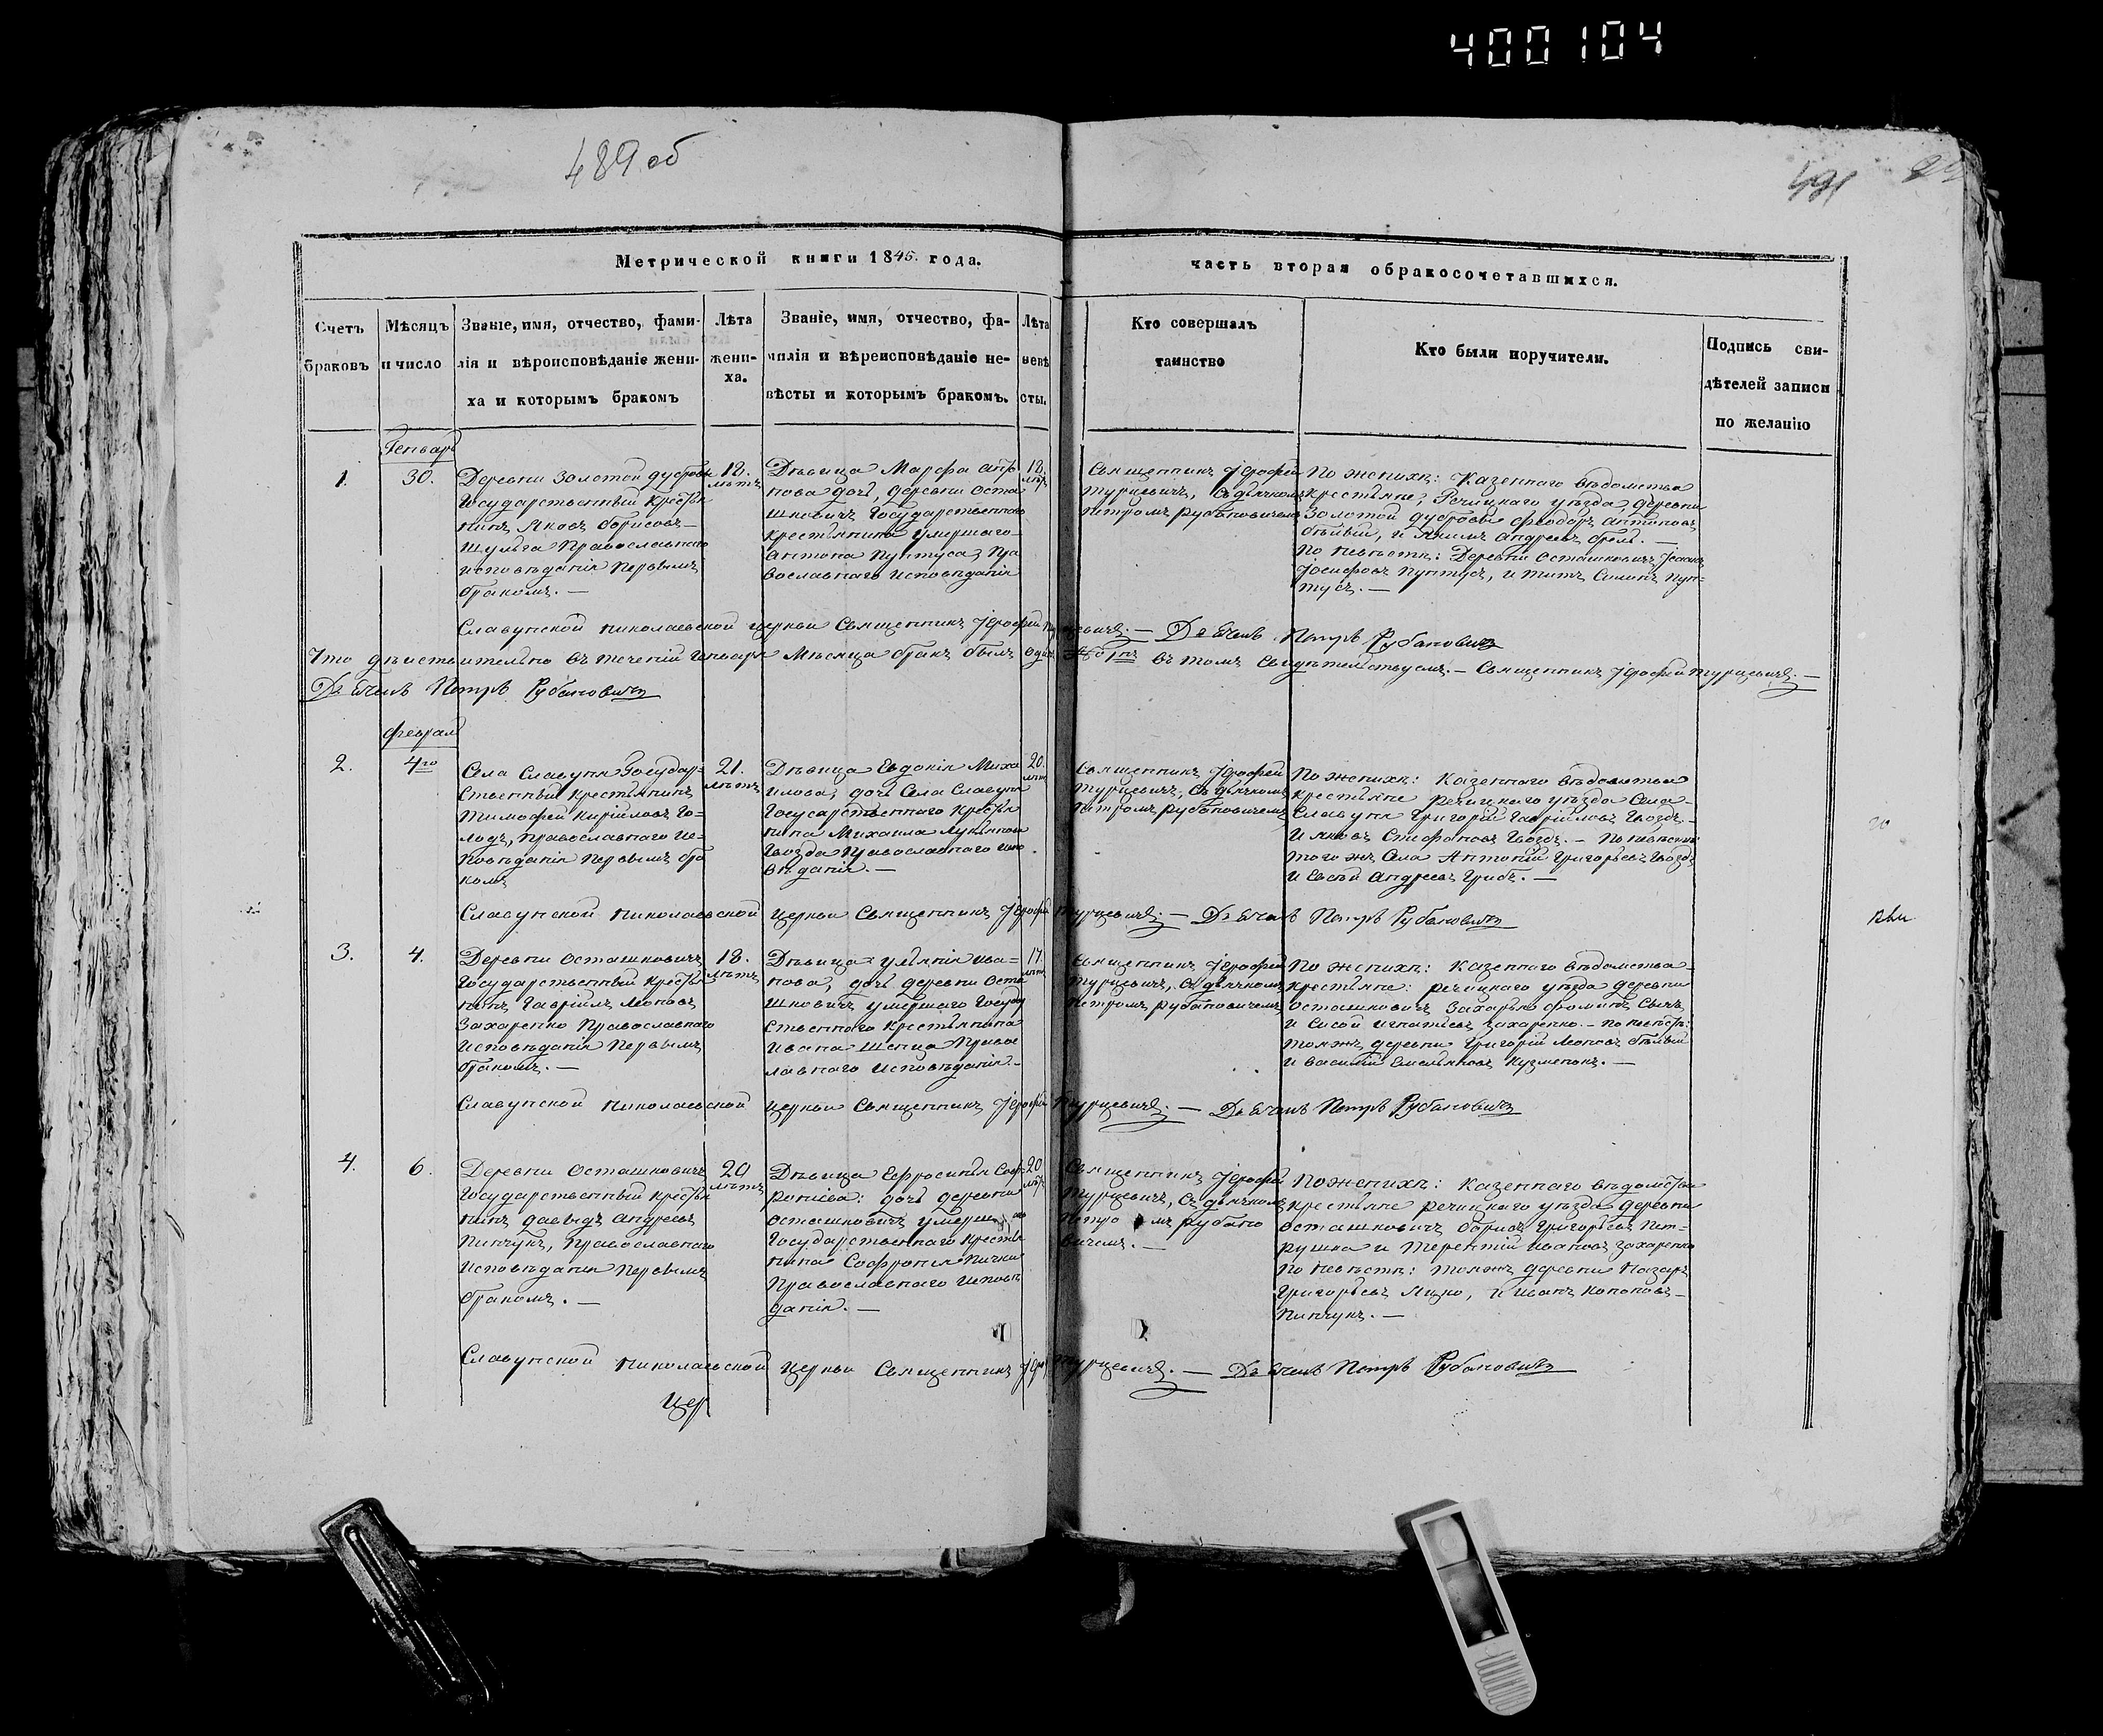 400104
489 об
491
Метрической книги 1845. года.
часть вторая обракосочетавшихся.
Счетъ
браковъ
Мѣсяцъ
и число
Званіе, имя, отчество, фами-
лія и вѣроисповѣданіе жени-
ха и которымъ бракомъ
Лѣта
жени-
ха.
Званіе, имя, отчество, фа-
милія и вѣреисповѣданіе не-
вѣсты и которымъ бракомъ.
Лѣта
невѣ
сты.
Кто совершалъ
таинство
Кто были поручители.
Подпись сви-
дѣтелей записи
по желанію
Генварь
1.
30.
Деревни Золотой дубровы
Государственный Крестья
нинъ Яковъ Борисовъ
Шульга Православнаго
исповѣданія Первымъ
бракомъ. —
18.
лѣтъ
Дѣвица Марфа Анто
нова дочь, деревни Оста
шковичъ Государственнаго
крестьянина умершаго
Антона Пунтуса, Пра
вославнаго исповѣданія
18.
лѣт.
Священникъ Іерофей
Турцевичъ, съ дьячкомъ
Петромъ Рубановичемъ
По женихѣ: Казеннаго вѣдомства
крестьяне: Речицкаго уѣзда, деревни
Золотой дубровы Феодоръ Антоновъ
Бѣлый, и Андреевъ
По невѣстѣ: Деревни Осташковичъ
Іосифовъ Пунтусъ, и Титъ Симонъ Пун-
тусъ. —
Славунской Николаевской церкви Священникъ Іерофей Турцевичъ. — Дьячекъ Петръ Рубановичъ
Что дѣйствительно въ теченій Генваря Мѣсяца бракъ былъ одинъ въ томъ Свидѣтельствуемъ. — Священникъ Іерофей Турцевичъ. —
Дьячекъ Петръ Рубановичъ
Феврал
2.
4го
Села Славуня Государ-
ственный крестьянинъ
Тимофей Кириловъ Го-
лодъ, Православнаго ис-
повѣданія Первымъ бра
комъ
21.
лѣтъ
Дѣвица Евдокія Миха
илова, дочь Села Славуня
Государственнаго Крестья
нина Михаила Лукьянова
Гвозда Православнаго испо
вѣданія. —
20.
лѣт
Священникъ Іерофей
Турцевичъ, съ дьячкомъ
Петромъ Рубановичемъ
По женихѣ: Казеннаго вѣдомства
крестьяне Речицкаго уѣзда Села
Славуня Григорій Гавриловъ Гвоздъ
и Яковъ Стефановъ Гвоздъ. — По невѣстѣ
того жъ Села Антоній Григорьевъ Гвоздъ
и Евсей Андреевъ Грибъ. —
Славунской Николаевской церкви Священникъ Іерофей Турцевичъ. — Дьячекъ Петръ Рубановичъ
3.
4.
Деревни Осташковичъ
Государственный Крестья
нинъ Гавріилъ Леоновъ
Захаренко Православнаго
исповѣданія Первымъ
бракомъ. —
18.
лѣтъ
Дѣвица Ульянія Ива=
нова, дочь деревни Оста
шковичъ умершаго Государ
ственнаго крестьянина
Ивана Шенца Правос
лавнаго исповѣданія. —
17
лѣт
Священникъ Іерофей
Турцевичъ, съ дьячкомъ
Петромъ Рубановичемъ
По женихѣ: Казеннаго вѣдомства
крестьяне: речицкаго уѣзда деревни
Осташковичъ Захарько Фоминъ Сычъ
и Сысой Игнатіевъ Захаренко. — По невѣстѣ:
той жъ деревни Григорій Леоновъ Бѣлый
и Василій Емельяновъ Кузменокъ. —
Славунской Николаевской церкви Священникъ Іерофей Турцевичъ. — Дьячекъ Петръ Рубановичъ
4.
6.
Деревни Осташковичъ
Государственный Крестья
нинъ Давыдъ Андреевъ
Пинчукъ, Православнаго
исповѣданія Первымъ
бракомъ. —
20
лѣтъ
Дѣвица Ефросинія Соф-
роніева: дочь деревни
Осташковичъ умершаго
Государственнаго Крестья
нина Софронія
Православнаго исповѣ
данія. —
20
лѣт
Священникъ Іерофей
Турцевичъ, съ дьячкомъ
Петромъ Рубано
вичемъ. —
По женихѣ: Казеннаго вѣдомства
крестьяне речицкаго уѣзда деревни
Осташковичъ Борисъ Григорьевъ Пет-
рушка и Терентій Ивановъ Захаренко
По невѣстѣ: той жъ деревни Назаръ
Григорьевъ Яцко, и Иванъ Кононовъ
Пинчукъ. —
Славунской Николаевской Церкви Священникъ Іероф Турцевичъ. — Дьячекъ Петръ Рубановичъ
Цер